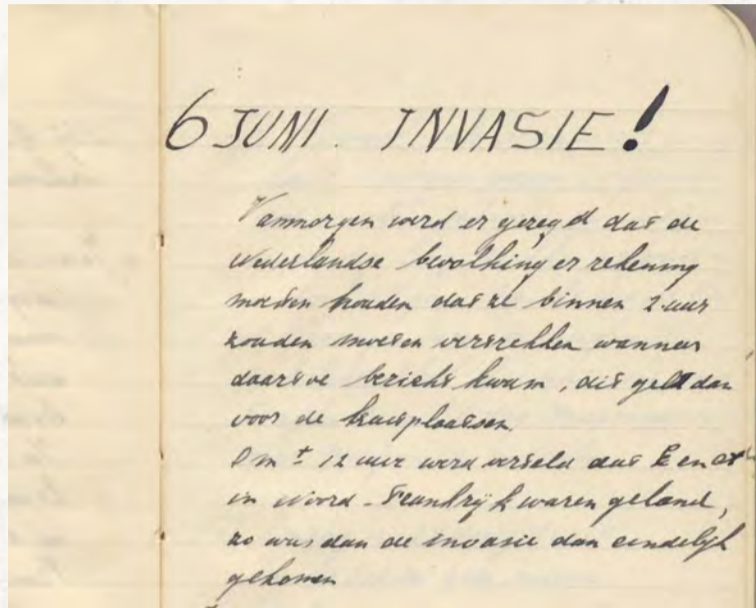 6 JUNI. INVASIE!
Vanmorgen werd er gezegd dat de
Nederlandse bevolking er rekening
moesten houden dat ze binnen 2 uur
zouden moeten vertrekken wanneer
daartoe bericht kwam, dit geldt dan
voor de kustplaatsen.
Om ± 12 uur werd verteld dat E en
in Noord-Frankrijk waren geland,
zo was dan de invasie dan eindelijk
gekomen